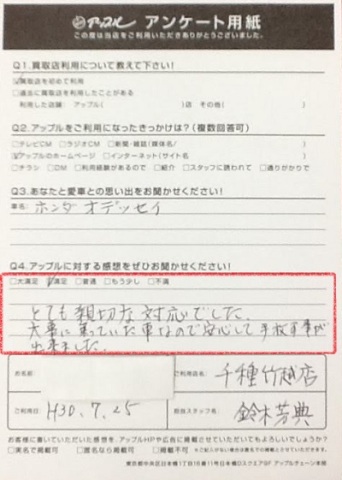 アップル アンケート用紙
この度は当店をご利用いただきありがとうございました。
Q1.買取店利用について教えて下さい!
買取店を初めて利用
過去に買取店を利用したことがある
利用した店舗: アップル( )店 その他( )
Q2.アップルをご利用になったきっかけは?(複数回答可)
テレビCM ラジオCM 新聞・雑誌(媒体名/ )
アップルのホームページ インターネット(サイト名 )
チラシ DM 利用経験があるので 紹介 スタッフに誘われて 通りがかりで
Q3.あなたと愛車との思い出をお聞かせください!
車名: ホンダ オデッセイ
Q4.アップルに対する感想をぜひお聞かせください!
大満足 満足 普通 もう少し 不満
とても親切な対応でした。
大事に乗っていた車なので安心して手放す事が
出来ました。
お名前
ご利用店名: 千種竹越店
ご利用日 H30.7.25
担当スタッフ名: 鈴木芳典
お客様に書いていただいた感想を、アップルHPや広告に掲載させていただいてもよろしいでしょうか?
実名で掲載可 匿名なら掲載可 掲載不可